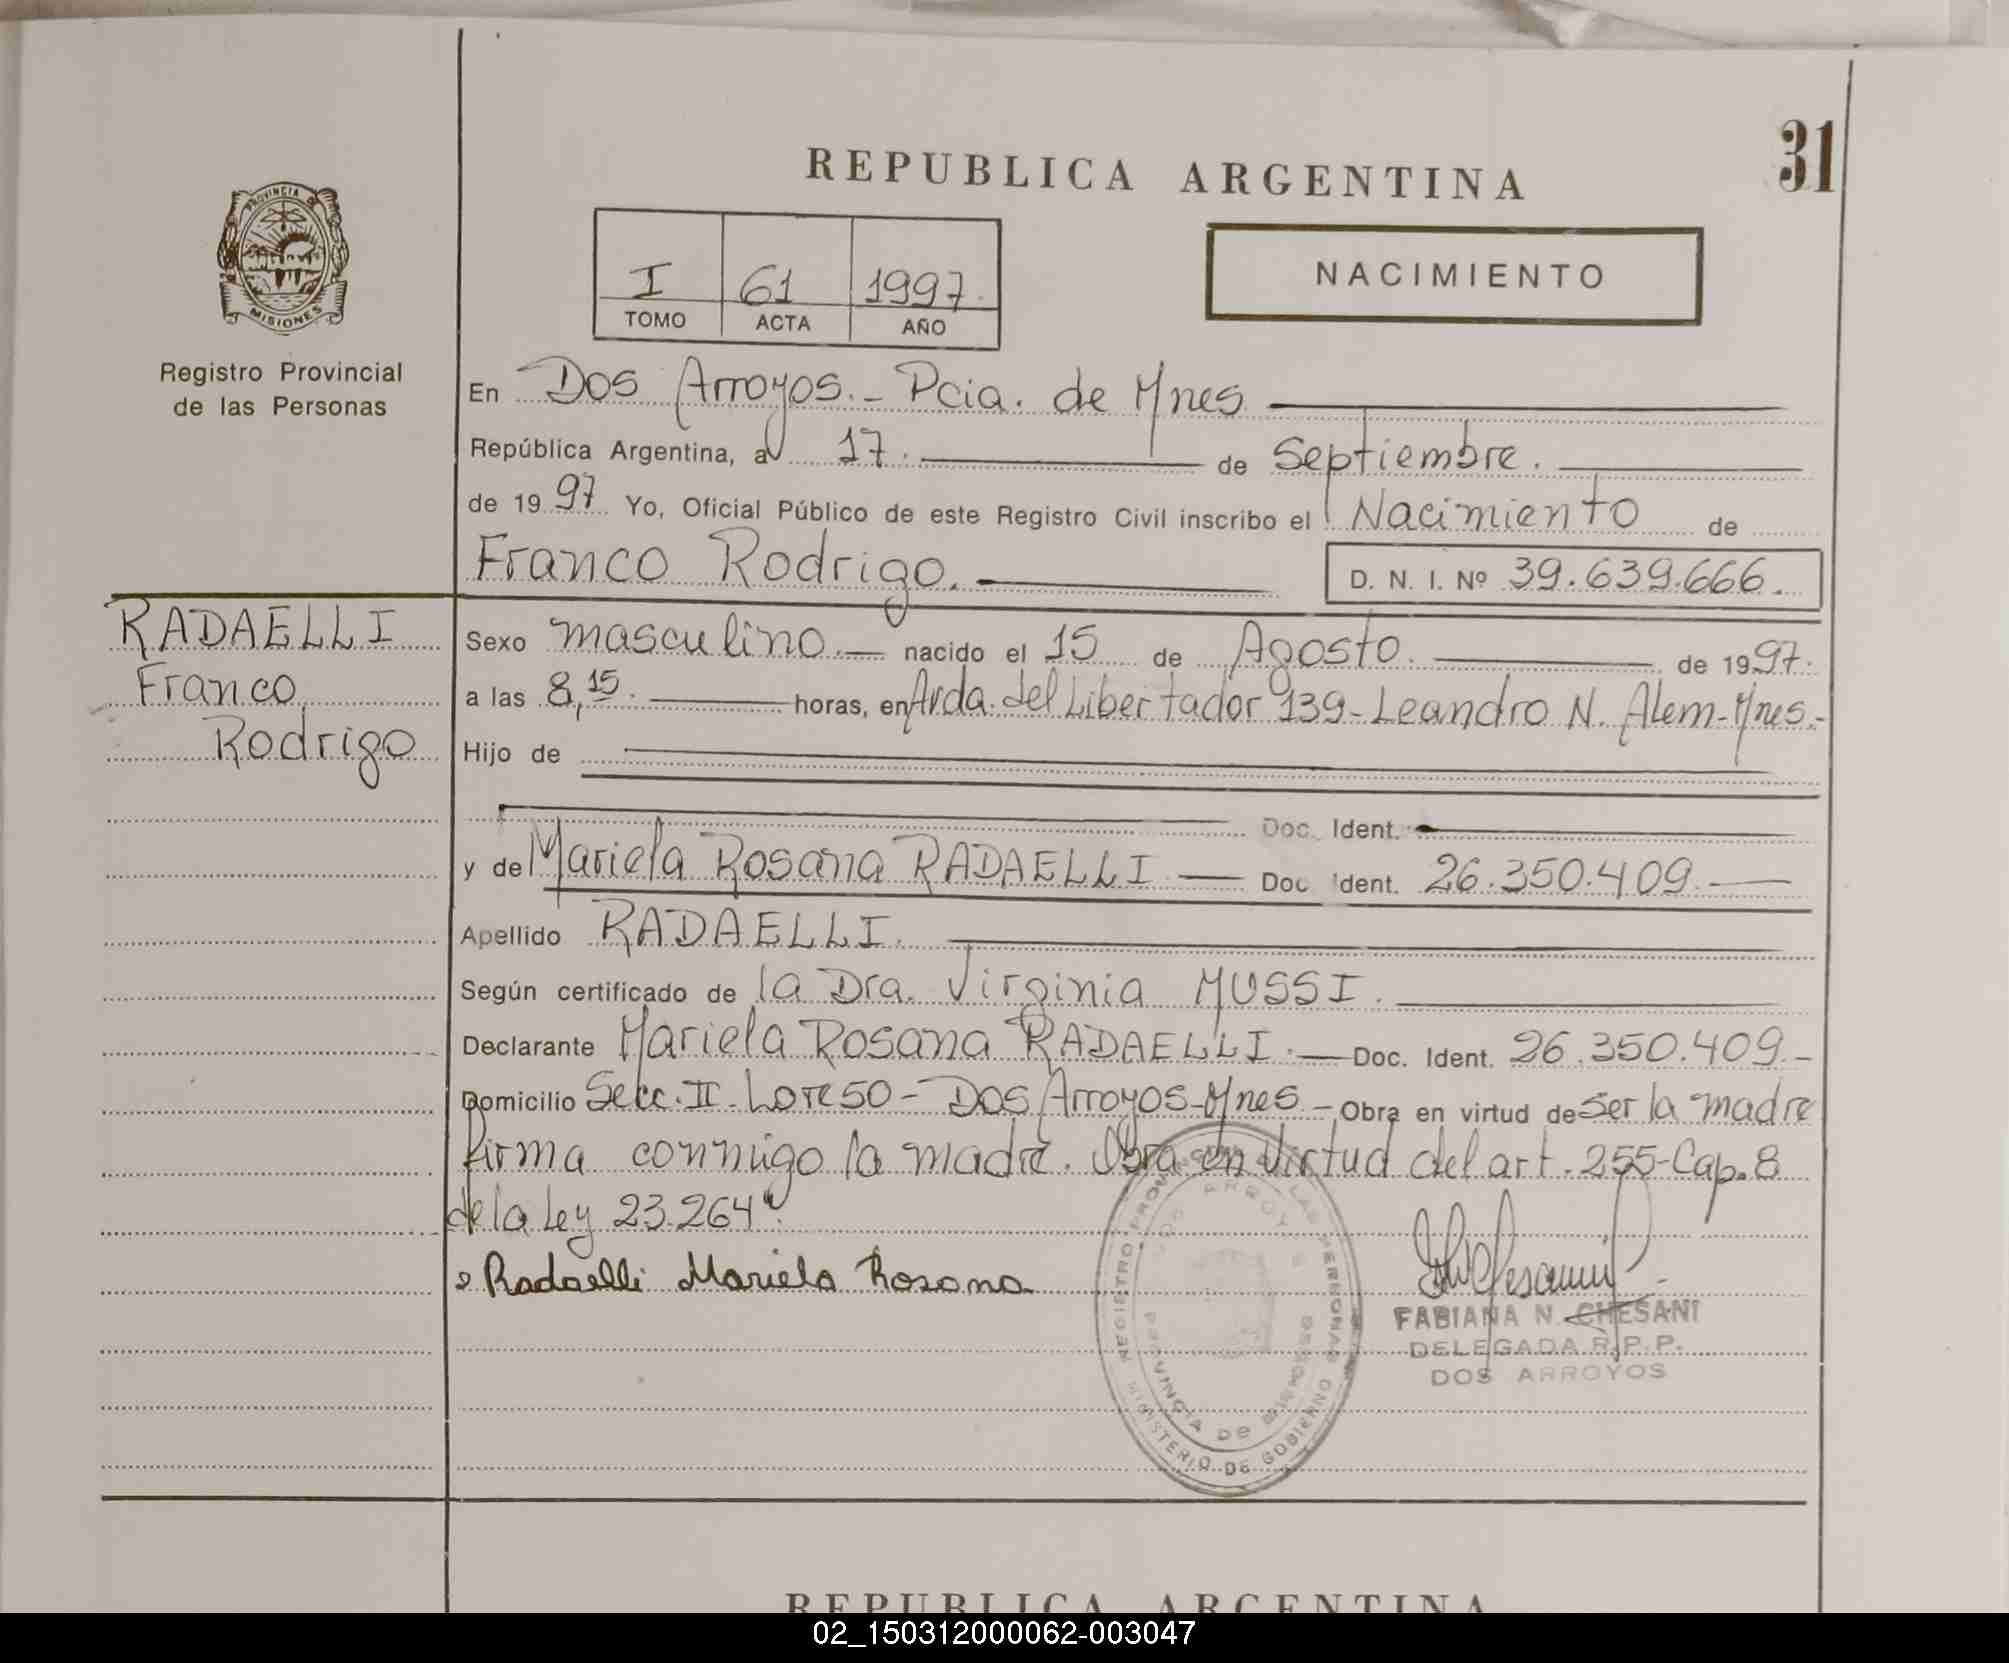 31
REPUBLICA ARGENTINA
PROVINCIA DE
MISIONES
Registro Provincial
de las Personas
I 61 1997.
TOMO ACTA AÑO
NACIMIENTO
En Dos Arroyos.- Pcia. de Mnes
República Argentina, a 17. de Septiembre.
de 1997 Yo, Oficial Público de este Registro Civil inscribo el Nacimiento de
Franco Rodrigo. D. N. I. Nº 39.639.666.
RADAELLI
Franco
Rodrigo
Sexo masculino.- nacido el 15 de Agosto. de 1997.
a las 8,15. horas, en Avda. del Libertador 139-Leandro N. Alem-Mnes.-
Hijo de
Doc. Ident.
y de Mariela Rosana RADAELLI Doc Ident. 26.350.409.
Apellido RADAELLI.
Según certificado de la Dra. Virginia MUSSI.
Declarante Mariela Rosana RADAELLI.- Doc. Ident. 26.350.409.-
Domicilio Secc. II-Lote 50-Dos Arroyos-Mnes.- Obra en virtud de ser la madre
firma conmigo la madre. Obra en Virtud del art. 255-Cap. 8
de la Ley 23.264".
Radaelli Mariela Rosana
REGISTRO PROVINCIAL DE LAS PERSONAS
DOS ARROYOS
PROVINCIA DE MISIONES
MINISTERIO DE GOBIERNO
FABIANA N. CHESANI
DELEGADA R.P.P.
DOS ARROYOS
REPUBLICA ARGENTINA
02_150312000062-003047